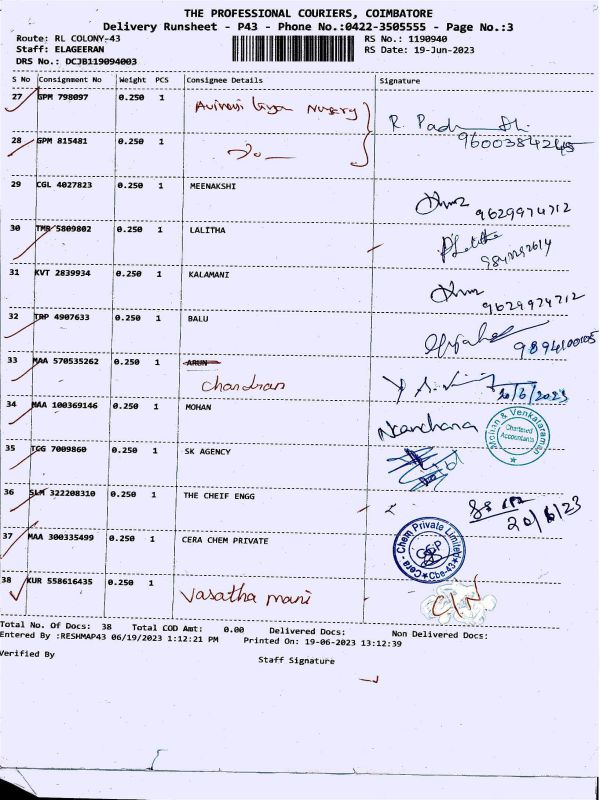 THE PROFESSIONAL COURIERS, COIMBATORE
Delivery Runsheet - P43 - Phone No.:0422-3505555 - Page No.:3
Route: RL COLONY-43 RS No.: 1190940
Staff: ELAGEERAN RS Date: 19-Jun-2023
DRS No.: DCJB119094003
S No Consignment No Weight PCS Consignee Details Signature
27 GPM 798097 0.250 1 Nursery
R. Padma
28 GPM 815481 0.250 1 Do
29 CGL 4027823 0.250 1 MEENAKSHI
9629974712
30 TMR 5809802 0.250 1 LALITHA
P. Lalitha
31 KVT 2839934 0.250 1 KALAMANI
9629974712
32 TRP 4907633 0.250 1 BALU
9894100105
33 MAA 570535262 0.250 1 ARUN
Chandran
20/6/2023
34 MAA 100369146 0.250 1 MOHAN
Mohan & Venkataraman
Chartered
Accountants
35 TCG 7009860 0.250 1 SK AGENCY
36 SLM 322208310 0.250 1 THE CHEIF ENGG
20/6/23
37 MAA 300335499 0.250 1 CERA CHEM PRIVATE
Cera-Chem Private Limited
Cbe-43
38 KUR 558616435 0.250 1
Vasatha mani C/N
Total No. Of Docs: 38 Total COD Amt: 0.00 Delivered Docs: Non Delivered Docs:
Entered By :RESHMAP43 06/19/2023 1:12:21 PM Printed On: 19-06-2023 13:12:39
Verified By
Staff Signature